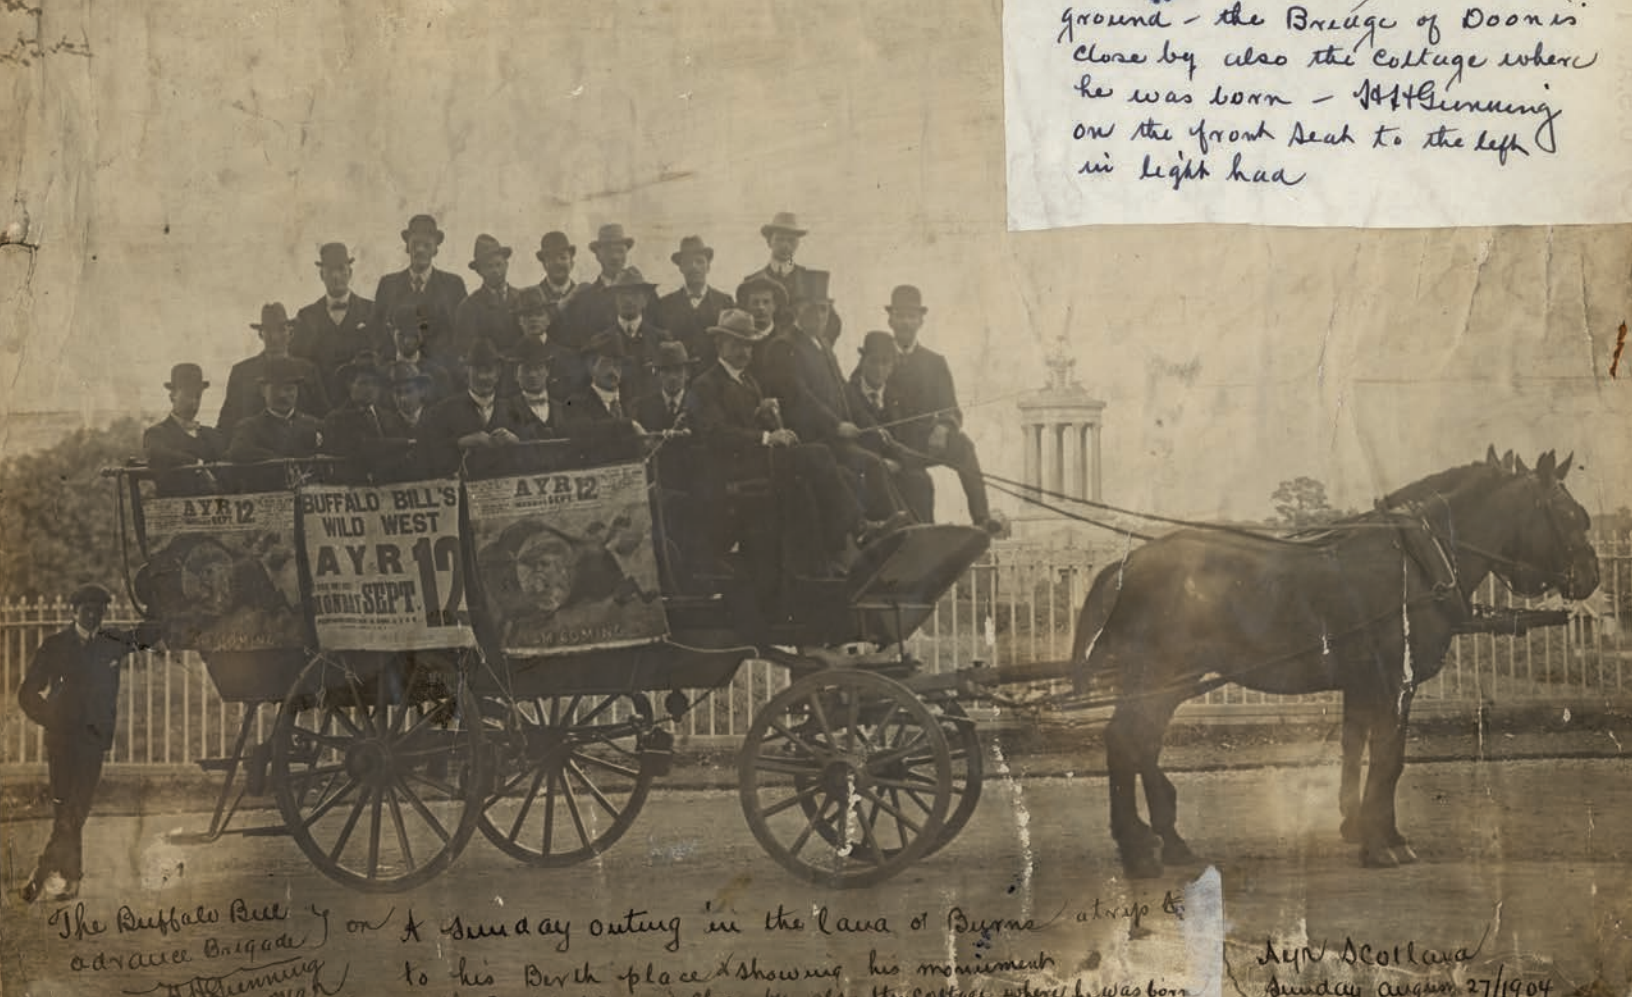 ground - the Breage of Doon is
close by also the cottage where
he was born - HHGunning
on the front seat to the left
in light had
AYR 12
AYR 12
BUFFALO BILL'S
WILD WEST
AYR 12
MONDAY SEPT.
COMING
I'M COMING
The Buffalo Bill
advance Brigade
HHGunning
on A Sunday outing in the land of Burns a trip to
to his Birth place & showing his monument
the cottage where he was born
Ayr Scotland
Sunday august 27/1904